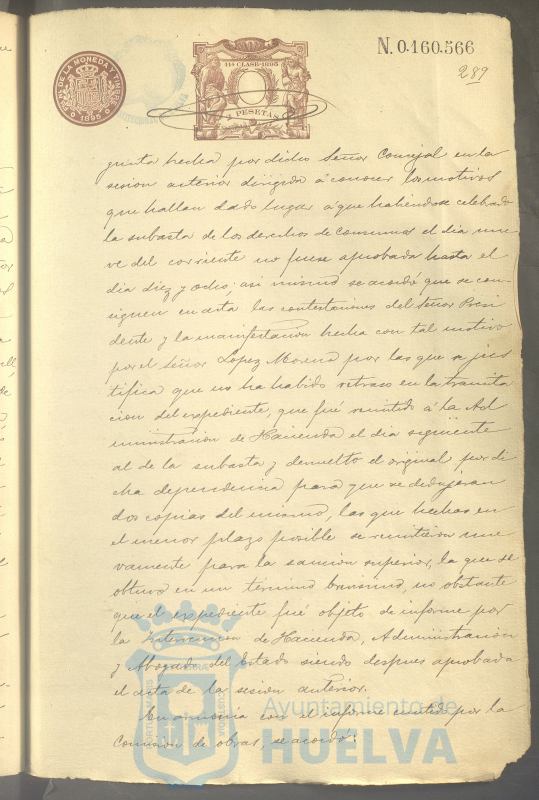 N. 0.160.566
289
FÁB. DE LA MONEDA Y TIMBRE
1895
11ª CLASE-1895
2 PESETAS
gunta hecha por dicho Señor Concejal en la
sesion anterior dirigida á conocer los motivos
que hallan dado lugar á que habiendose celebrado
la subasta de los derechos de Consumos el dia nue-
ve del corriente no fuese aprobada hasta el
dia diez y ocho; asi mismo se acordó que se con-
signen en acta las contestaciones del Señor Presi
dente y la manifestacion hecha con tal motivo
por el Señor Lopez Moreno por las que se jus
tifica que no ha habido retraso en la tramita
cion del expediente, que fué remitido á la Ad
ministracion de Hacienda el dia siguiente
al de la subasta y devuelto el original por di
cha dependencia para que se dedujeran
dos copias del mismo, las que hechas en
el menor plazo posible se remitieron nue-
vamente para la sancion superior, la que se
obtuvo en un término brevisimo, no obstante
que el expediente fué objeto de informe por
la Intervencion de Hacienda, Administracion
y Abogado del Estado siendo despues aprobada
el acta de la sesion anterior.
En armonia con el informe emitido por la
Comision de obras, se acordó:
Ayuntamiento de
HUELVA